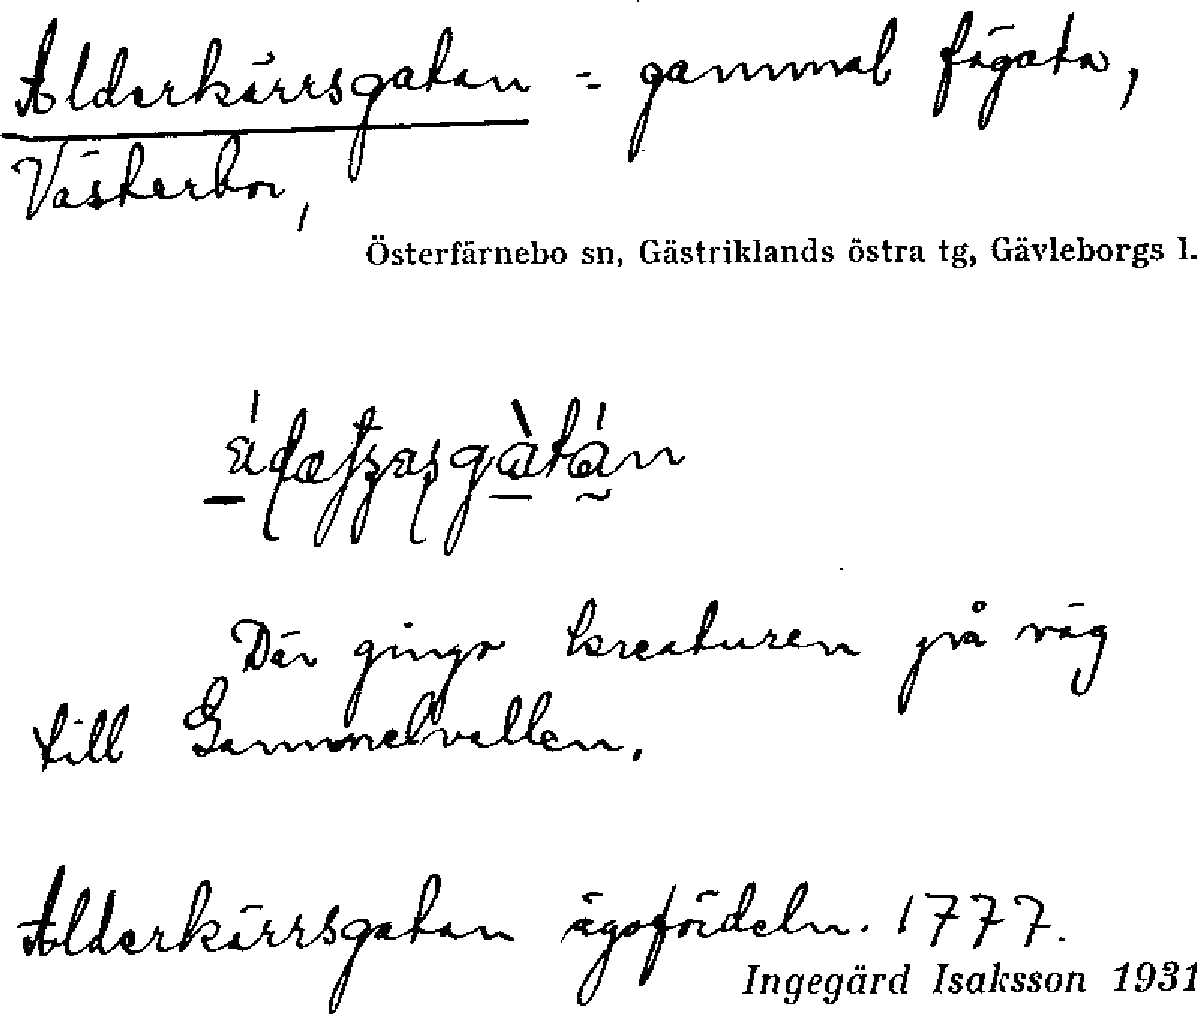 Alderkärrsgatan = gammal fägata,
Västerbor,
Österfärnebo sn, Gästriklands östra tg, Gävleborgs l.
Där gingo kreaturen på väg
till Gammelvallen.
Alderkärrsgatan ägofördeln. 1777.
Ingegärd Isaksson 1931